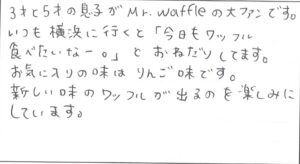 3才と5才の息子がMr.waffleの大ファンです。
いつも横浜に行くと「今日もワッフル
食べたいなー。」とおねだりしてます。
お気に入りの味はりんご味です。
新しい味のワッフルが出るのを楽しみに
しています。